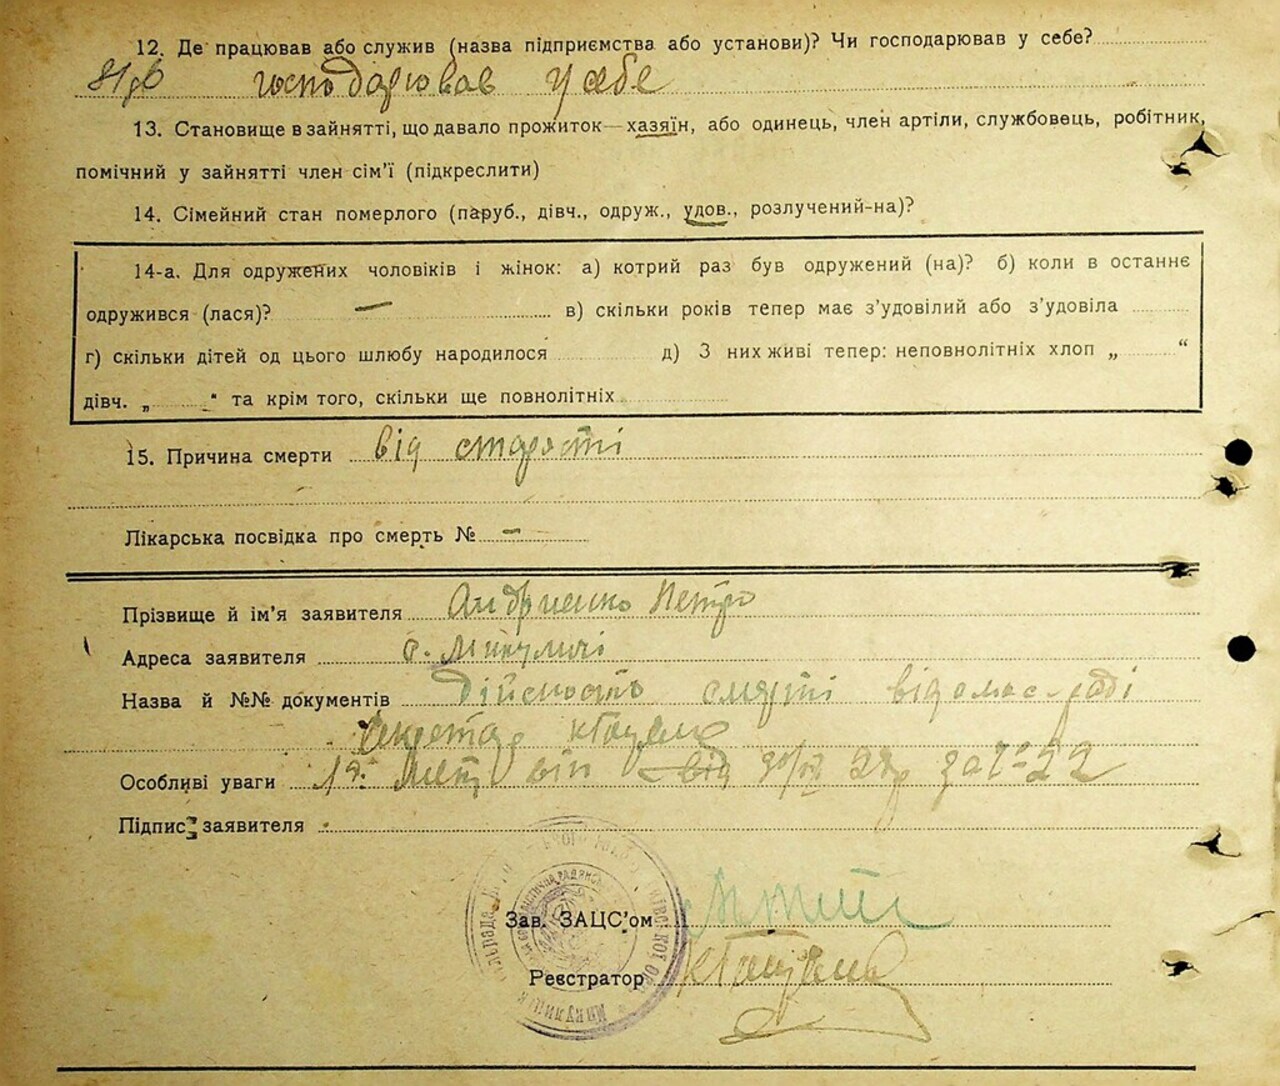 12. Де працював або служив (назва підприємства або установи)? Чи господарював у себе?
господарював у себе
13. Становище в зайнятті, що давало прожиток—хазяїн, або одинець, член артіли, службовець, робітник,
помічний у зайнятті член сім'ї (підкреслити)
14. Сімейний стан померлого (паруб., дівч., одруж., удов., розлучений-на)?
14-а. Для одружених чоловіків і жінок: а) котрий раз був одружений (на)? б) коли в останнє
одружився (лася)? — в) скільки років тепер має з'удовілий або з'удовіла
г) скільки дітей од цього шлюбу народилося д) З них живі тепер: неповнолітніх хлоп „ “
дівч. „ “ та крім того, скільки ще повнолітніх
15. Причина смерти від старости
Лікарська посвідка про смерть № —
Прізвище й ім'я заявителя Андриенко Петро
Адреса заявителя с. Микуличі
Назва й №№ документів дійсность смерти відома с-раді
секретар
Особливі уваги від
Підпис заявителя
Зав. ЗАЦС'ом
Реєстратор